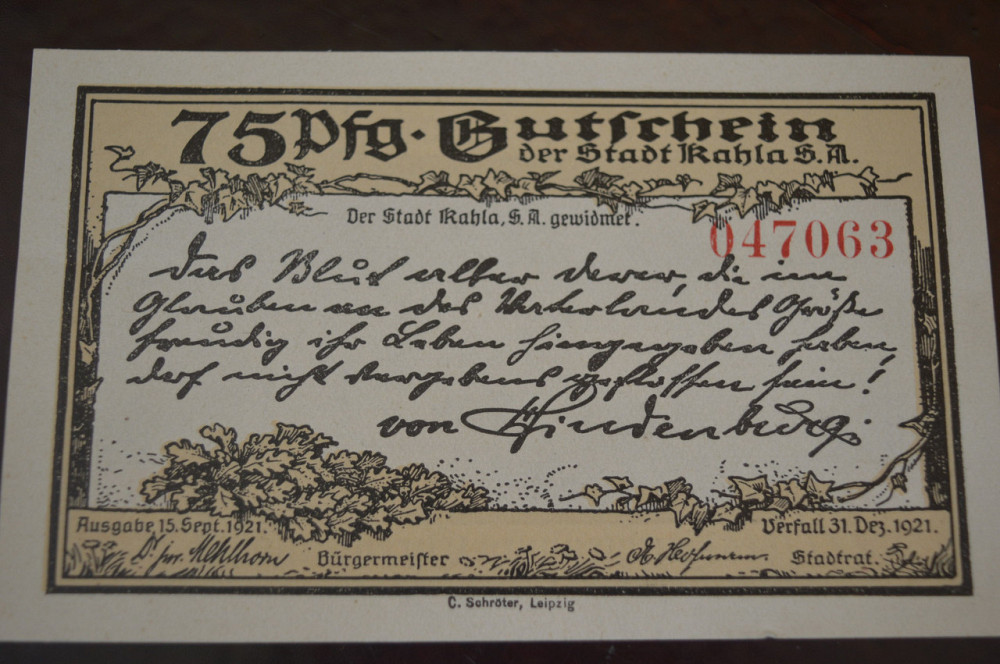 75 Pfg. Gutschein
der Stadt Kahla S.A.
Der Stadt Kahla, S.A. gewidmet.
047063
Das Blut aller derer, die im
Glauben an des Vaterlandes Größe
freudig ihr Leben hingegeben haben,
darf nicht vergebens geflossen sein!
von Hindenburg.
Ausgabe 15. Sept. 1921. Verfall 31. Dez. 1921.
Dr. jur. Mehlhorn Bürgermeister Stadtrat.
C. Schröter, Leipzig